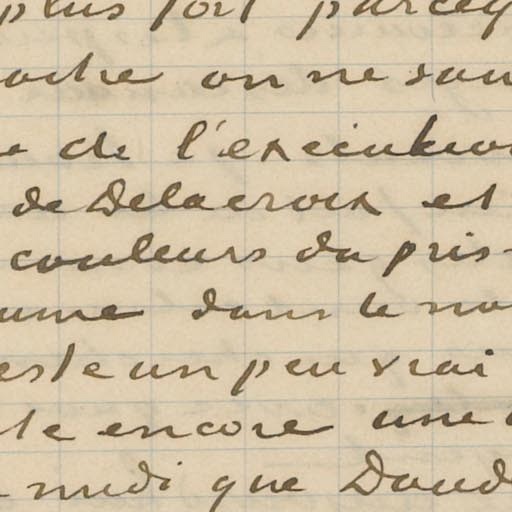 plus fort parceq
autre on ne sau
de l'exécution
de Delacroix et
couleurs du pris
dans le no
reste un peu vrai
te encore une
midi que Daud